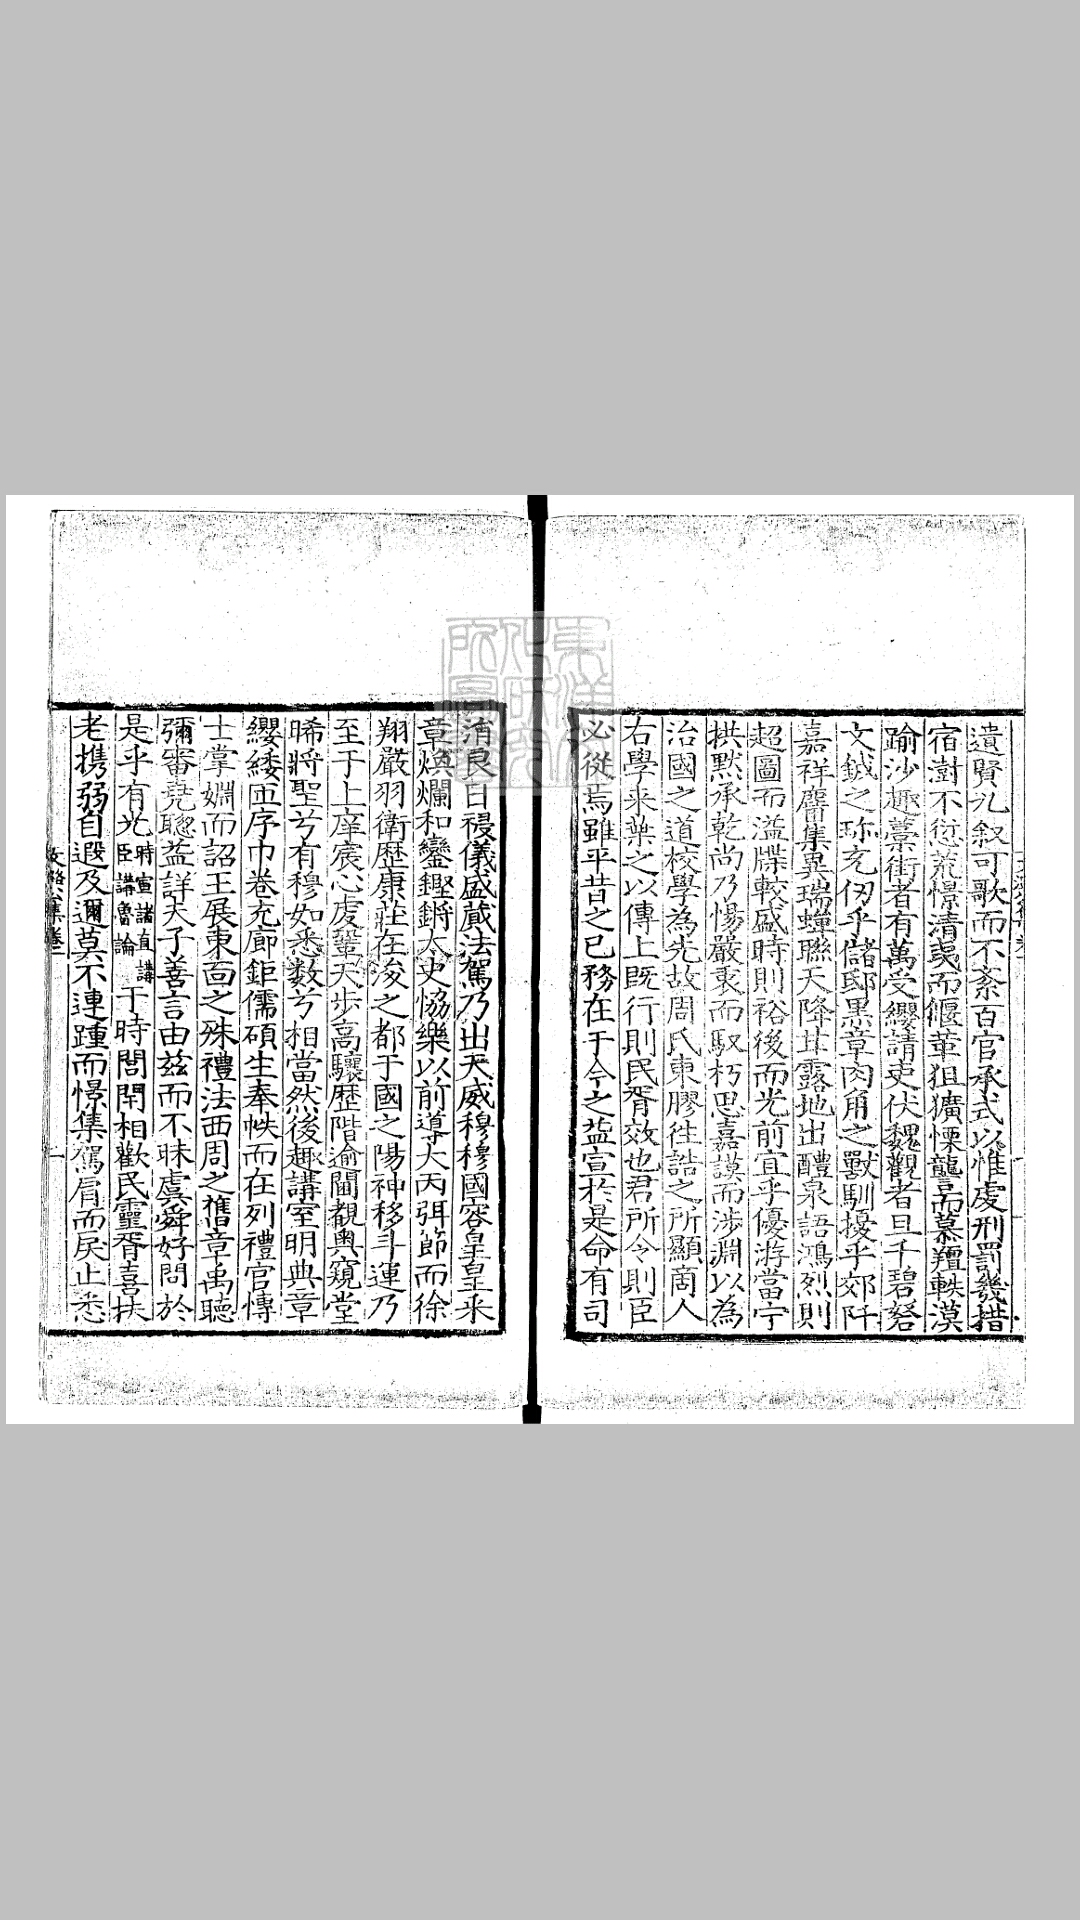 遺賢九叙可歌而不紊百官承式以惟䖍刑罰㡬措
宿澍不愆荒憬清夷而偃革狙獷慄讋而慕羶軼漠
踰沙趣藁街者有萬受纓請吏伏魏觀者旦千碧砮
文鉞之珎充仞乎儲邸黒章肉角之獸馴擾乎郊阡
嘉祥麕集異瑞蟬聯天降甘露地出醴泉語鴻烈則
超圖而溢牒較盛時則裕後而光前宜乎優游當宁
拱默承乾尚乃惕嚴衷而馭朽思嘉謨而涉淵以為
治國之道校學為先故周氏東膠徃誥之所顯商人
右學来葉之以傳上既行則民胥效也君所令則臣
必從焉雖平昔之已務在于今之益宣於是命有司
消良日祲儀盛蕆法駕乃出天威穆穆國容皇皇釆
章煥爛和鑾鏗鏘太史恊樂以前導大丙弭節而徐
翔嚴羽衛歴康莊在浚之都于國之陽神移斗運乃
至于上庠宸心虔鞏天步高驤歴階逾閫覩奥窺堂
晞將聖兮有穆如悉數兮相當然後趣講室明典章
纓緌匝序巾卷充廊鉅儒碩生奉帙而在列禮官愽
士掌婣而詔王展東面之殊禮法西周之舊章禹聴
彌審堯聦益詳天子善言由茲而不昧虞舜好問於
是乎有光時宣諸直講臣講魯論于時閭閈相歡民靈胥喜扶
老携弱自遐及邇莫不連踵而憬集駕肩而戾止悉